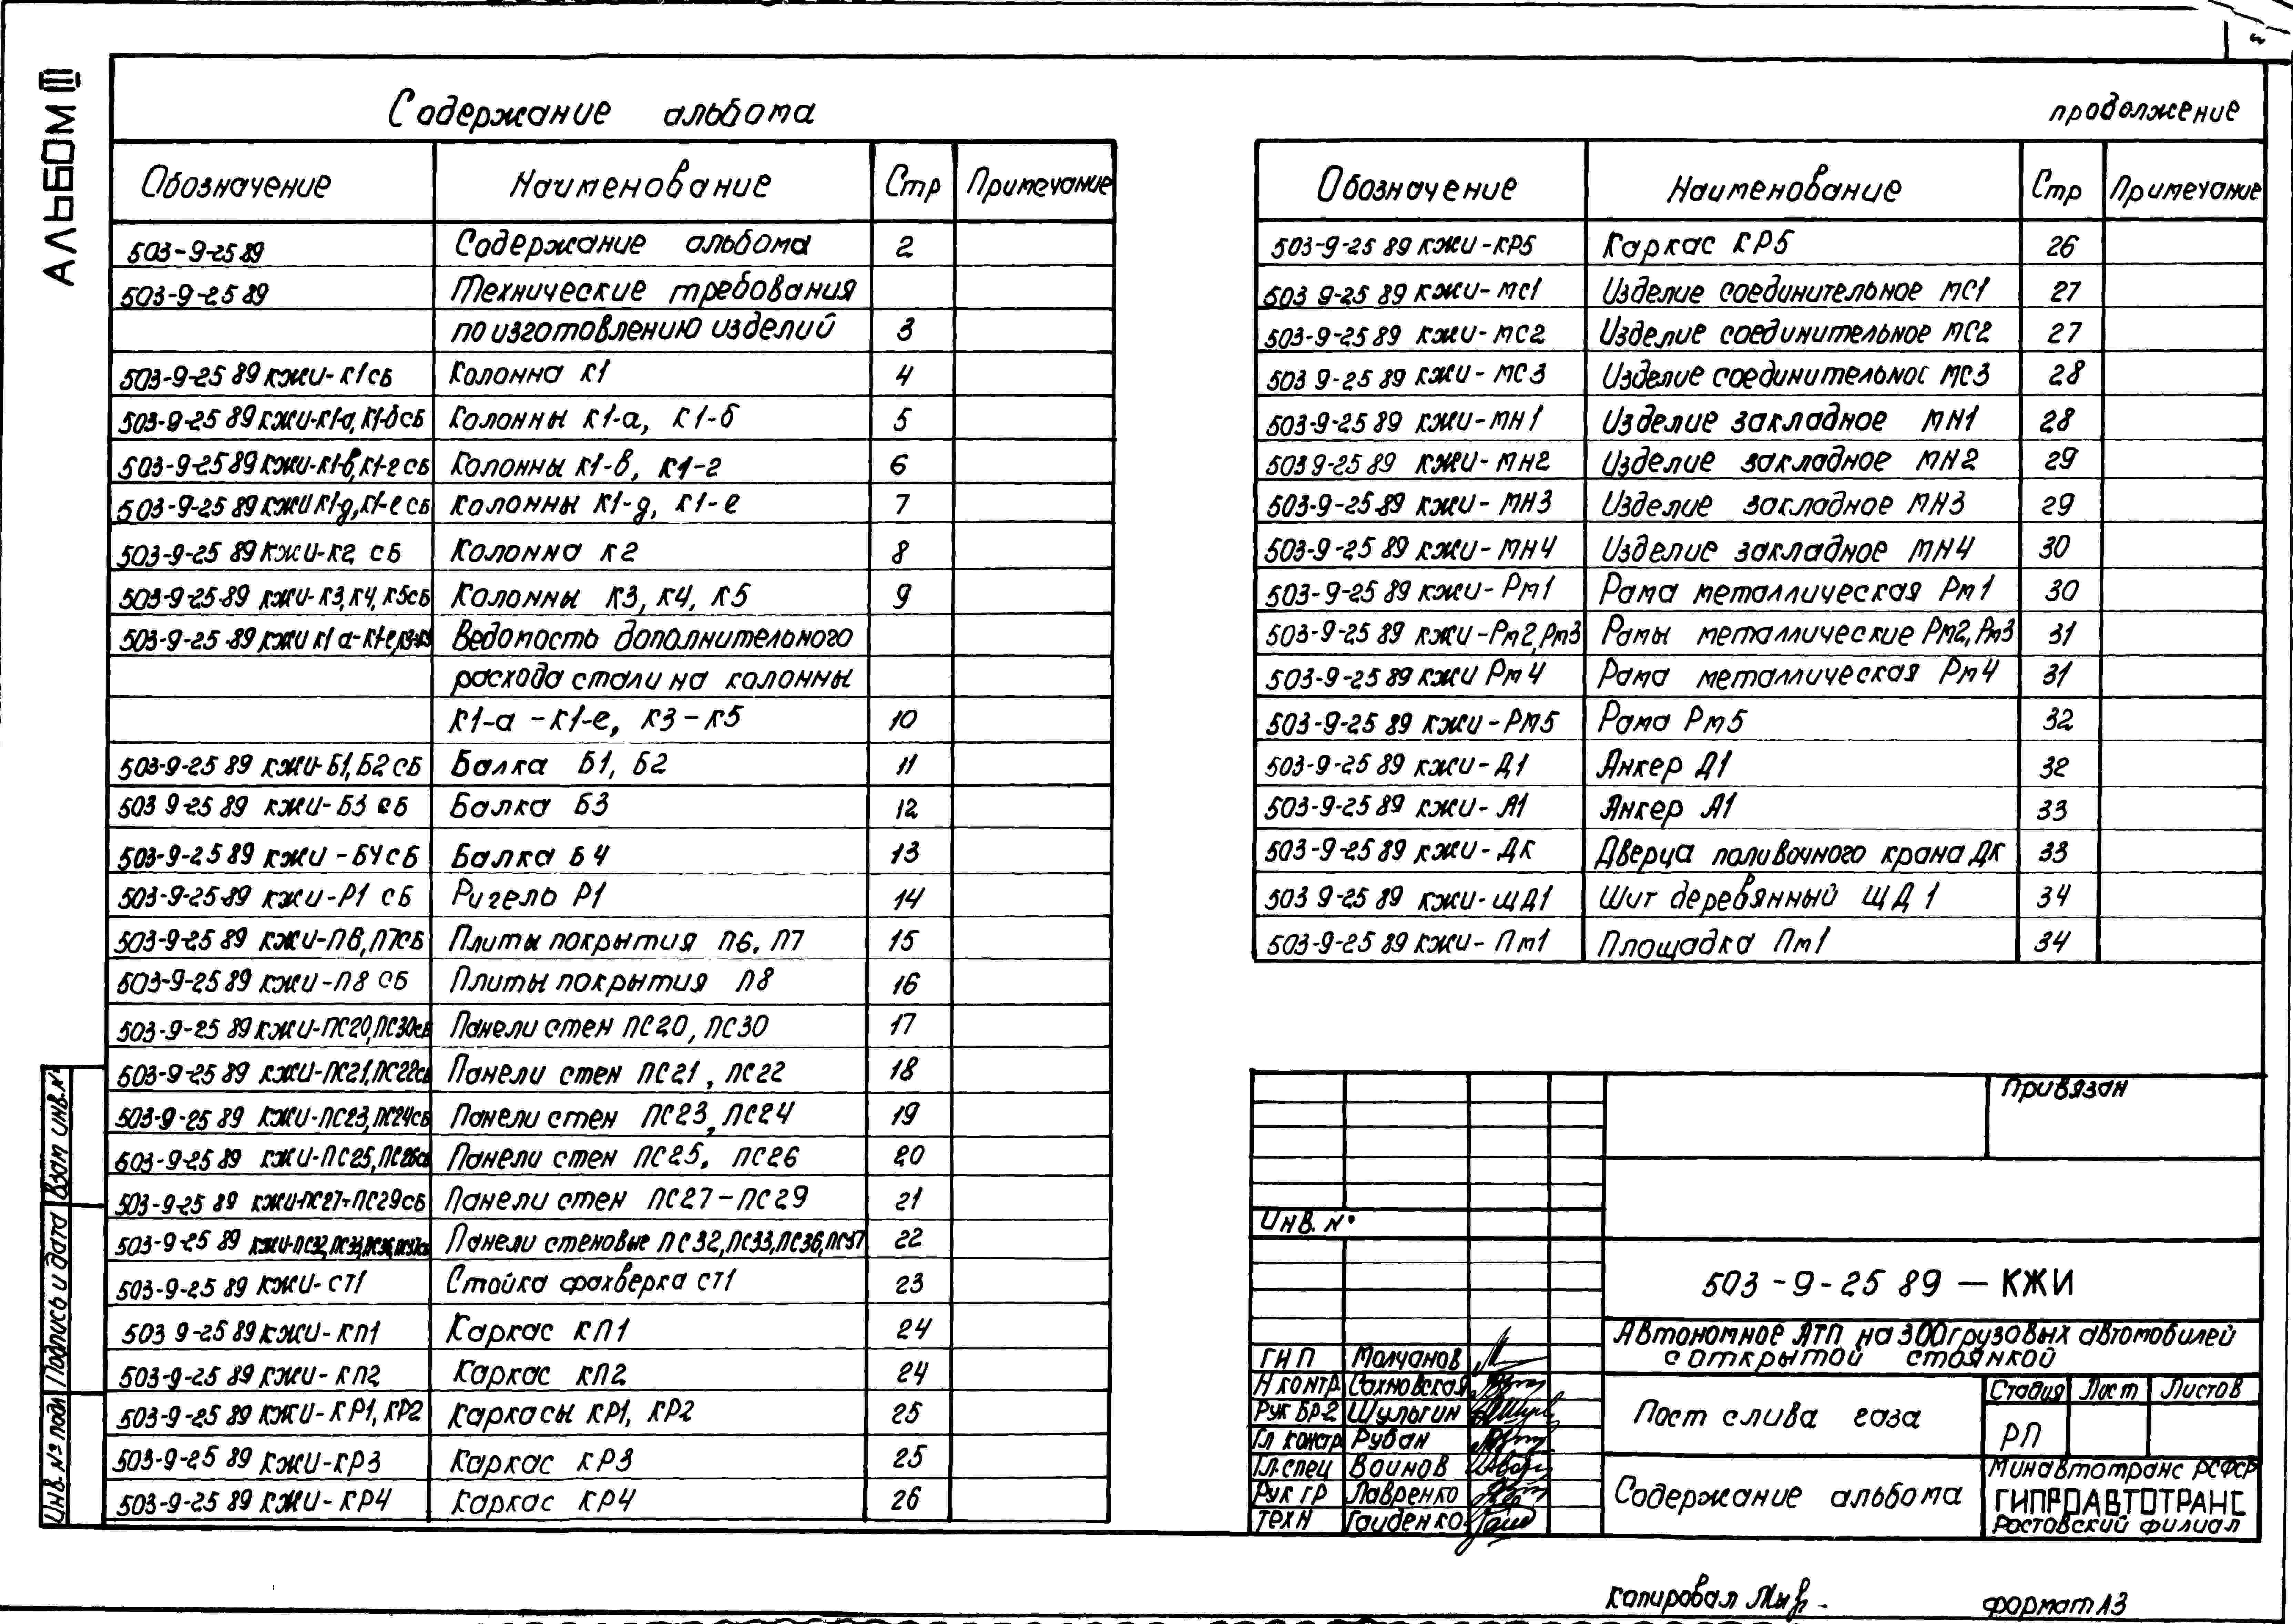 АЛЬБОМ III
Содержание альбома
Обозначение Наименование Стр Примечание
503-9-25 89 Содержание альбома 2
503-9-25 89 Технические требования
по изготовлению изделий 3
503-9-25 89 КЖИ-К1СБ Колонна К1 4
503-9-25 89 КЖИ-К1-а, К1-б СБ Колонны К1-а, К1-б 5
503-9-25 89 КЖИ-К1-в, К1-г СБ Колонны К1-в, К1-г 6
503-9-25 89 КЖИ К1-д, К1-е СБ Колонны К1-д, К1-е 7
503-9-25 89 КЖИ-К2 СБ Колонна К2 8
503-9-25-89 КЖИ-К3, К4, К5СБ Колонны К3, К4, К5 9
503-9-25-89 КЖИ К1 а-К1-е, К3-К5 Ведомость дополнительного
расхода стали на колонны
К1-а - К1-е, К3-К5 10
503-9-25 89 КЖИ-Б1, Б2 СБ Балка Б1, Б2 11
503 9-25 89 КЖИ-Б3 СБ Балка Б3 12
503-9-25 89 КЖИ-Б4СБ Балка Б4 13
503-9-25-89 КЖИ-Р1 СБ Ригель Р1 14
503-9-25 89 КЖИ-П6, П7СБ Плиты покрытия П6, П7 15
503-9-25 89 КЖИ-П8 СБ Плиты покрытия П8 16
503-9-25 89 КЖИ-ПС20, ПС30СБ Панели стен ПС20, ПС30 17
503-9-25 89 КЖИ-ПС21, ПС22СБ Панели стен ПС21, ПС22 18
503-9-25 89 КЖИ-ПС23, ПС24СБ Панели стен ПС23, ПС24 19
503-9-25 89 КЖИ-ПС25, ПС26СБ Панели стен ПС25, ПС26 20
503-9-25 89 КЖИ-ПС27-ПС29СБ Панели стен ПС27-ПС29 21
503-9-25 89 КЖИ-ПС32, ПС33, ПС36, ПС37СБ Панели стеновые ПС32, ПС33, ПС36, ПС37 22
503-9-25 89 КЖИ-СТ1 Стойка фахверка СТ1 23
503 9-25 89 КЖИ-КП1 Каркас КП1 24
503-9-25 89 КЖИ-КП2 Каркас КП2 24
503-9-25 89 КЖИ-КР1, КР2 Каркасы КР1, КР2 25
503-9-25 89 КЖИ-КР3 Каркас КР3 25
503-9-25 89 КЖИ-КР4 Каркас КР4 26
продолжение
Обозначение Наименование Стр Примечание
503-9-25 89 КЖИ-КР5 Каркас КР5 26
503 9-25 89 КЖИ-МС1 Изделие соединительное МС1 27
503-9-25 89 КЖИ-МС2 Изделие соединительное МС2 27
503 9-25 89 КЖИ-МС3 Изделие соединительное МС3 28
503-9-25 89 КЖИ-МН1 Изделие закладное МН1 28
503 9-25 89 КЖИ-МН2 Изделие закладное МН2 29
503-9-25-89 КЖИ-МН3 Изделие закладное МН3 29
503-9-25 89 КЖИ-МН4 Изделие закладное МН4 30
503-9-25 89 КЖИ-Рм1 Рама металлическая Рм1 30
503-9-25 89 КЖИ-Рм2, Рм3 Рамы металлические Рм2, Рм3 31
503-9-25 89 КЖИ Рм4 Рама металлическая Рм4 31
503-9-25 89 КЖИ-РМ5 Рама Рм5 32
503-9-25 89 КЖИ-Д1 Анкер Д1 32
503-9-25 89 КЖИ-А1 Анкер А1 33
503-9-25 89 КЖИ-ДК Дверца поливочного крана ДК 33
503 9-25 89 КЖИ-ЩД1 Щит деревянный ЩД1 34
503-9-25 89 КЖИ-Пм1 Площадка Пм1 34
Привязан
Инв. №
503-9-25 89 — КЖИ
Автономное АТП на 300 грузовых автомобилей
с открытой стоянкой
Пост слива газа
Стадия Лист Листов
РП
Содержание альбома
Минавтотранс РСФСР
ГИПРОАВТОТРАНС
Ростовский филиал
ГИП Молчанов
Н контр Сахновская
Рук БР-2 Шульгин
Гл констр Рубан
Гл.спец Воинов
Рук гр Лавренко
Техн Гайденко
Взам инв.№
Подпись и дата
Инв. № подл
Копировал
формат А3